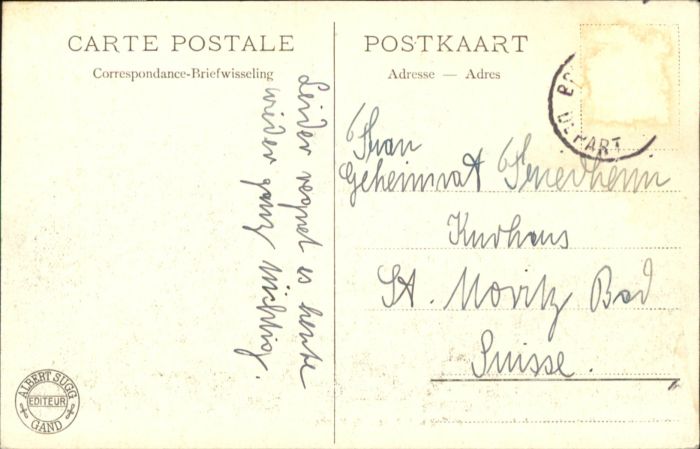 CARTE POSTALE
Correspondance-Briefwisseling
POSTKAART
Adresse — Adres
Leider regnet es heute
wieder ganz tüchtig.
DEPART
Frau
Geheimrat
Kurhaus
St. Moritz Bad
Suisse.
ALBERT SUGG
EDITEUR
GAND